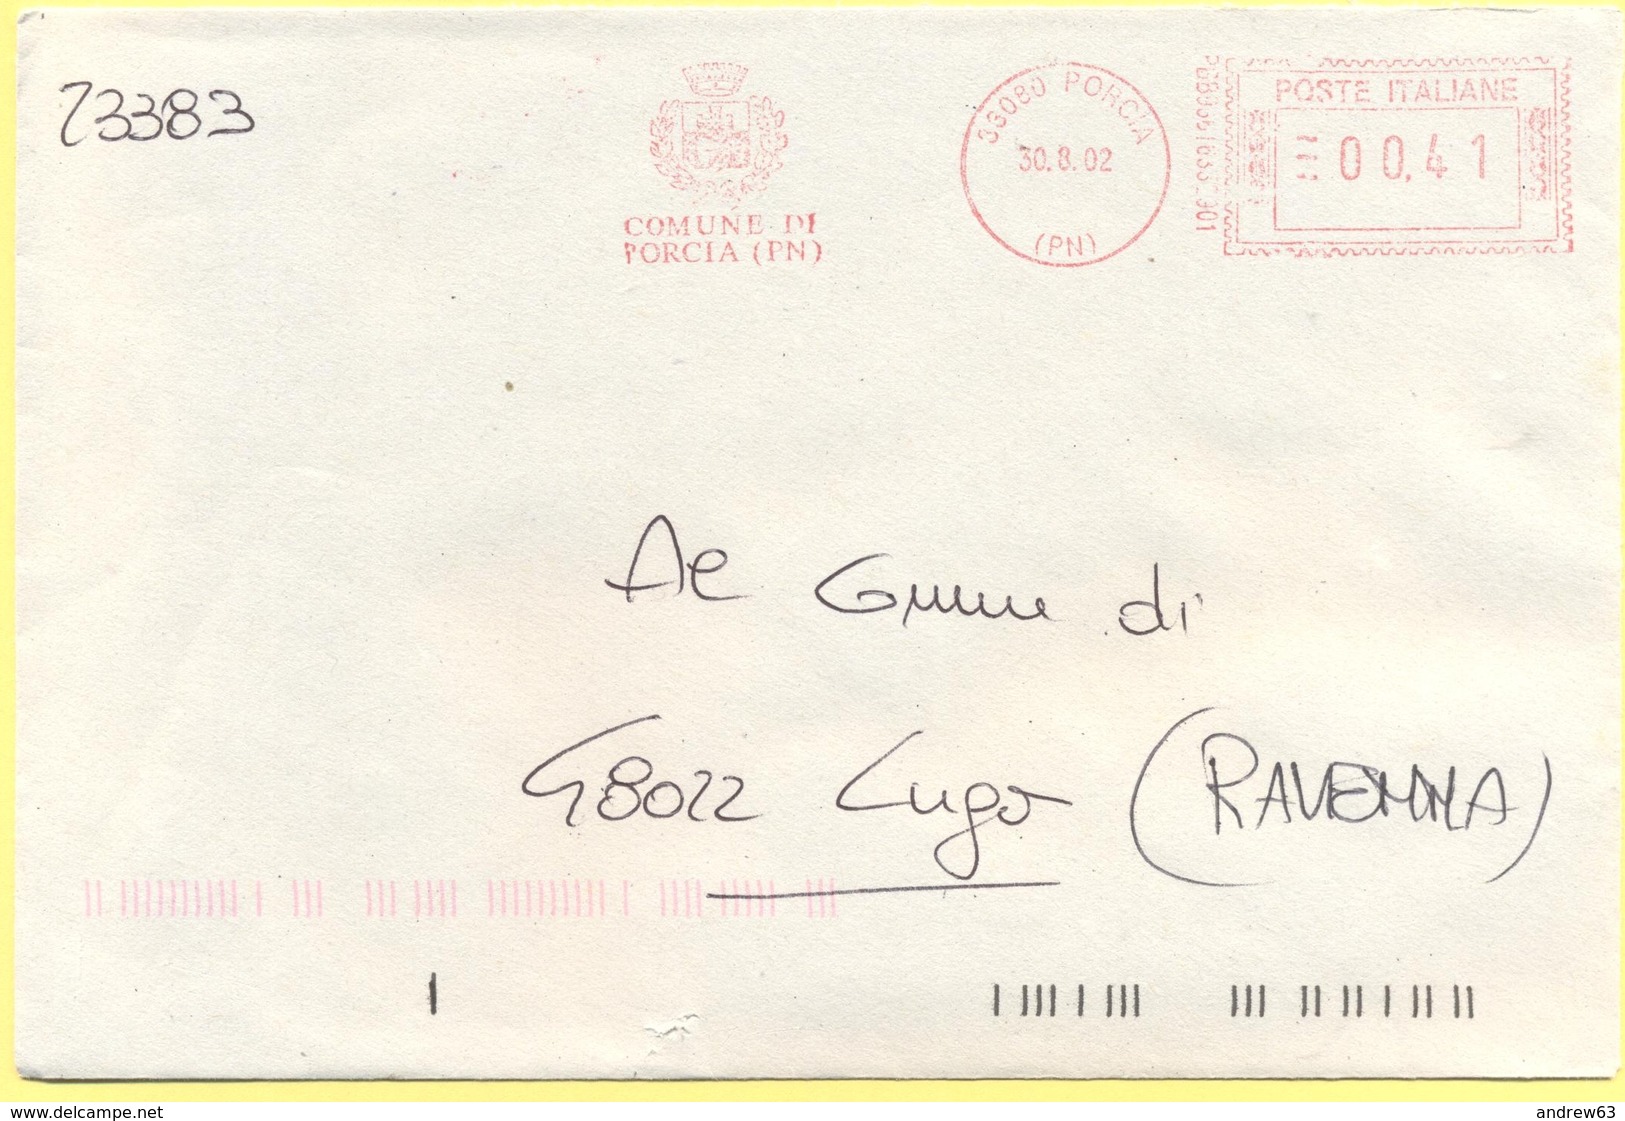 73383
COMUNE DI
PORCIA (PN)
33080 PORCIA
30.8.02
(PN)
POSTE ITALIANE
00,41
Al Comune di
48022 Lugo (RAVENNA)
www.delcampe.net
andrew63